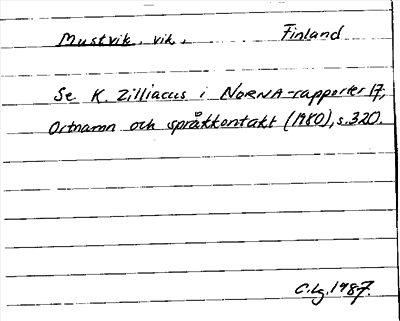 Mustvik, vik, Finland
Se K. Zilliacus i NORNA-rapporter 17,
Ortnamn och språkkontakt (1980), s. 320.
C.Lg. 1987.